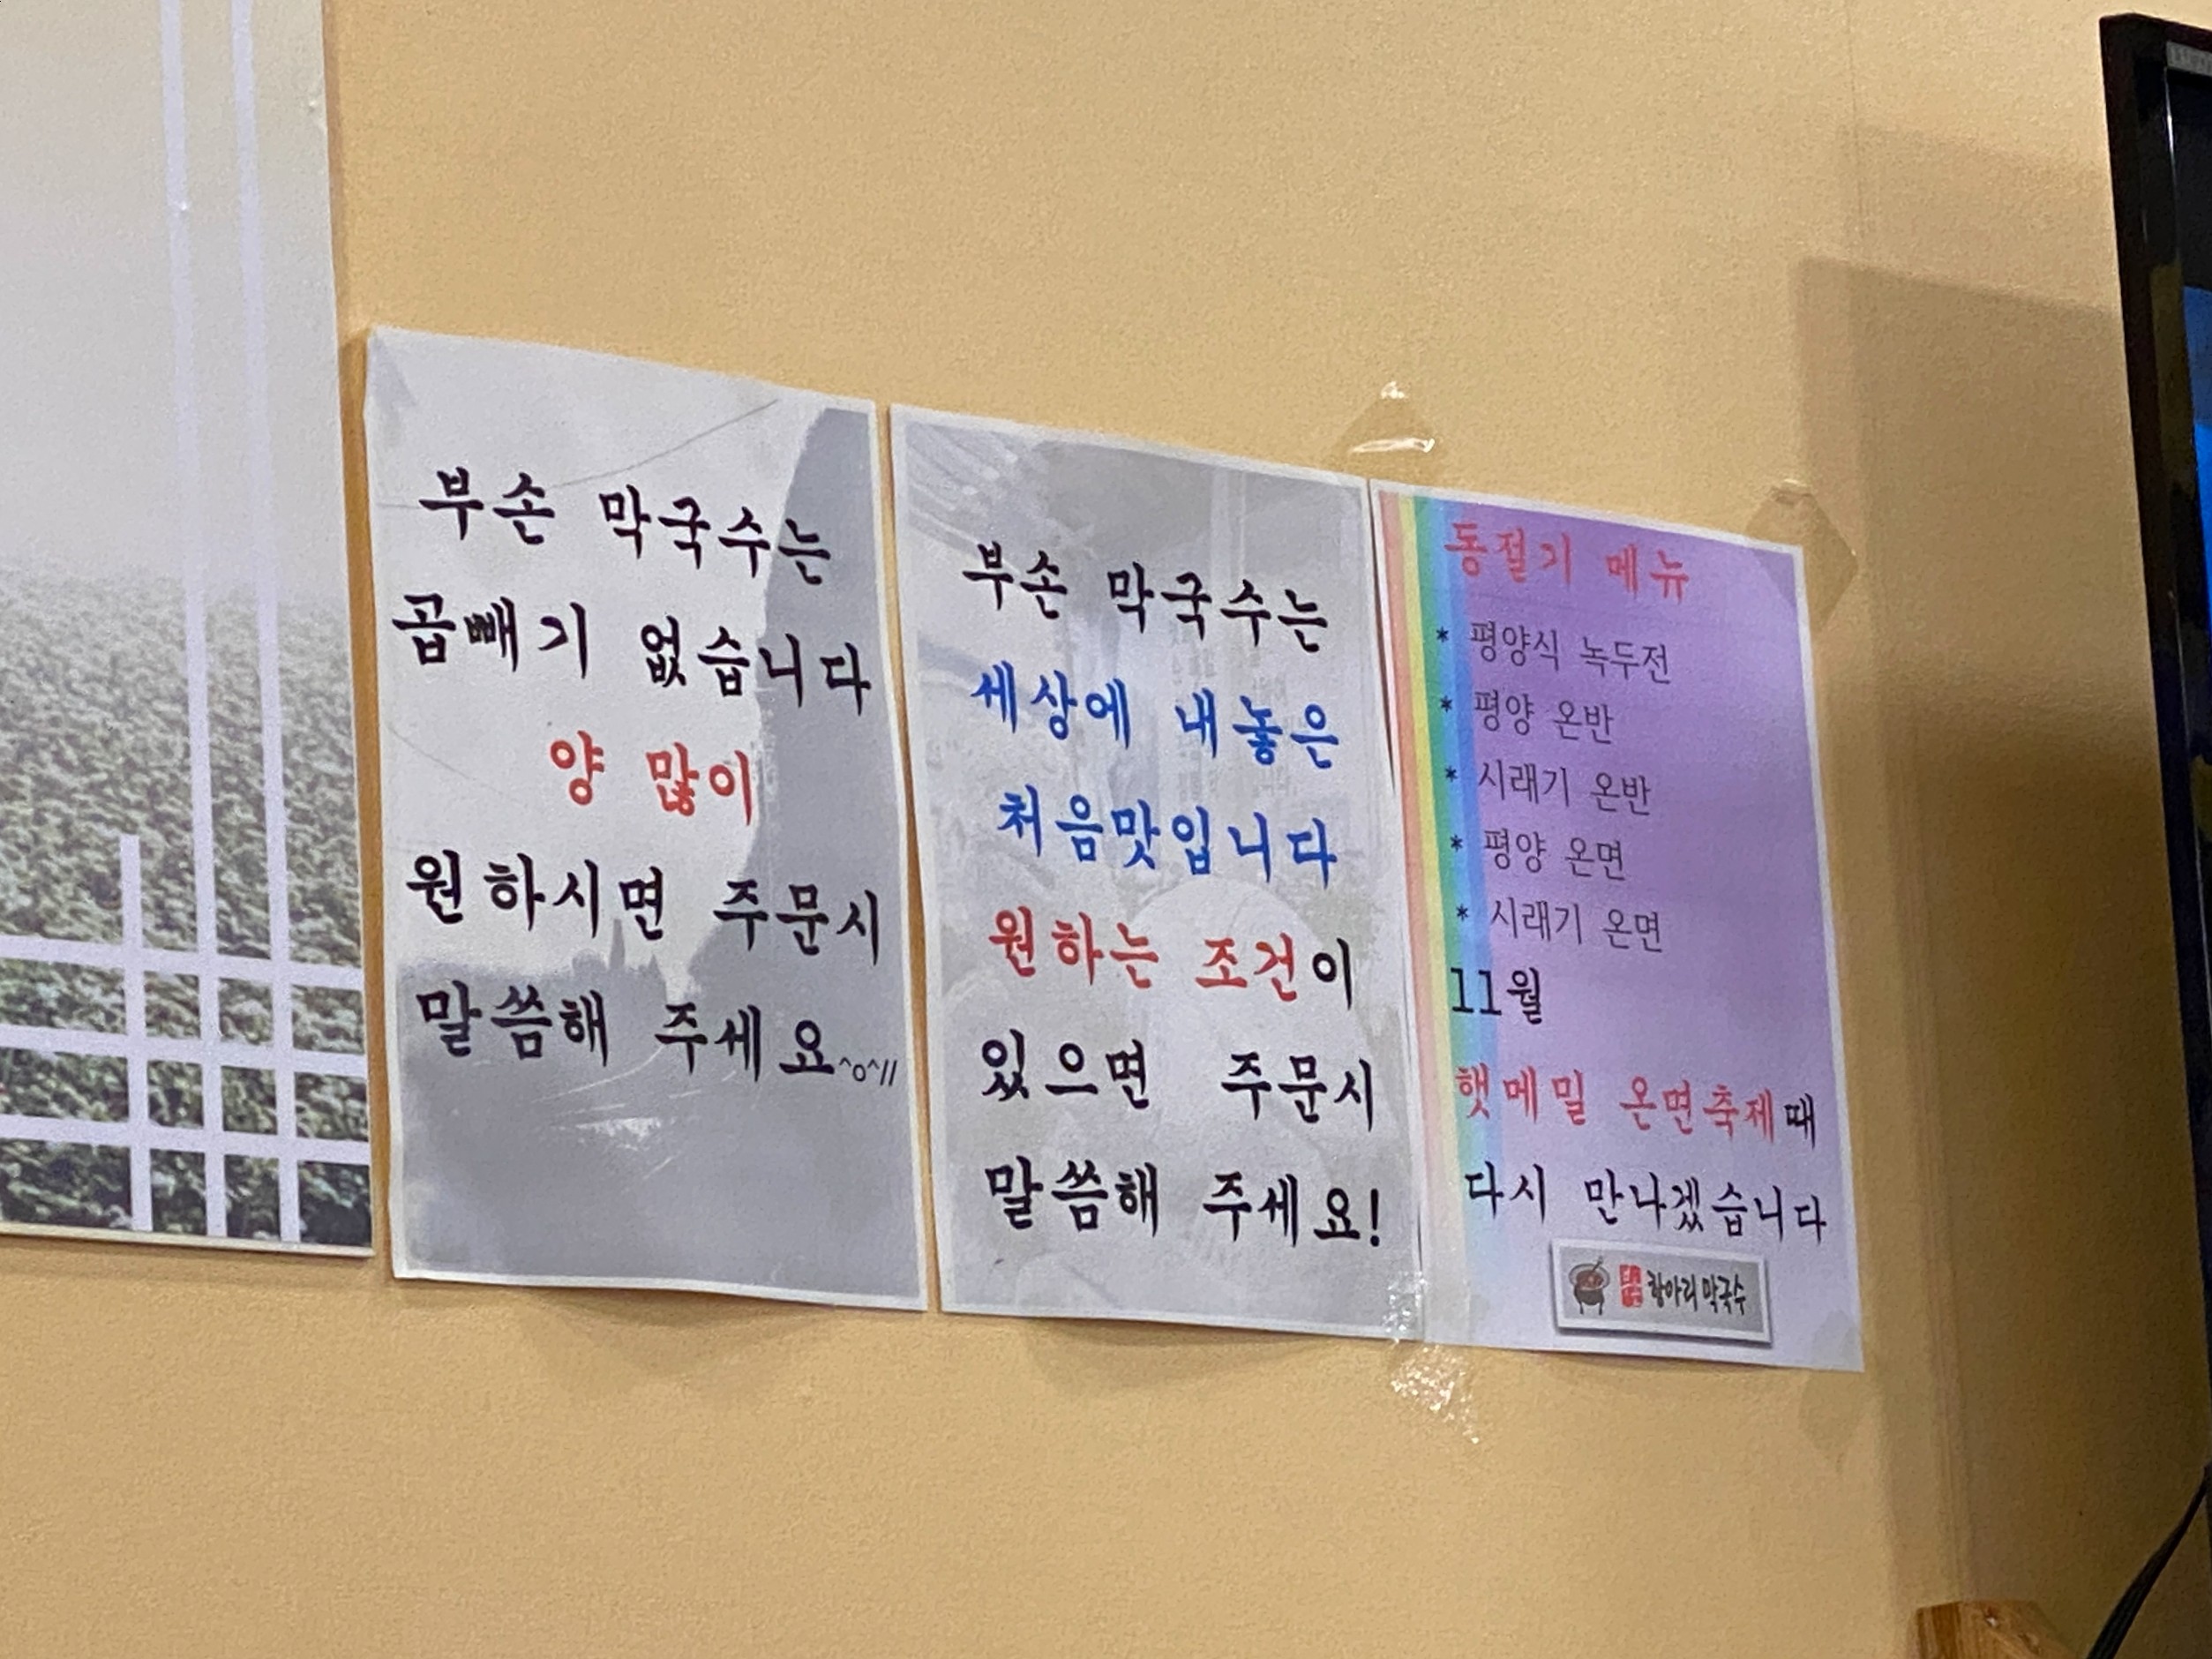 부손 막국수는
곱빼기 없습니다
양 많이
원하시면 주문시
말씀해 주세요^o^//
부손 막국수는
세상에 내놓은
처음맛입니다
원하는 조건이
있으면 주문시
말씀해 주세요!
동절기 메뉴
* 평양식 녹두전
* 평양 온반
* 시래기 온반
* 평양 온면
* 시래기 온면
11월
햇메밀 온면축제때
다시 만나겠습니다
항아리 막국수